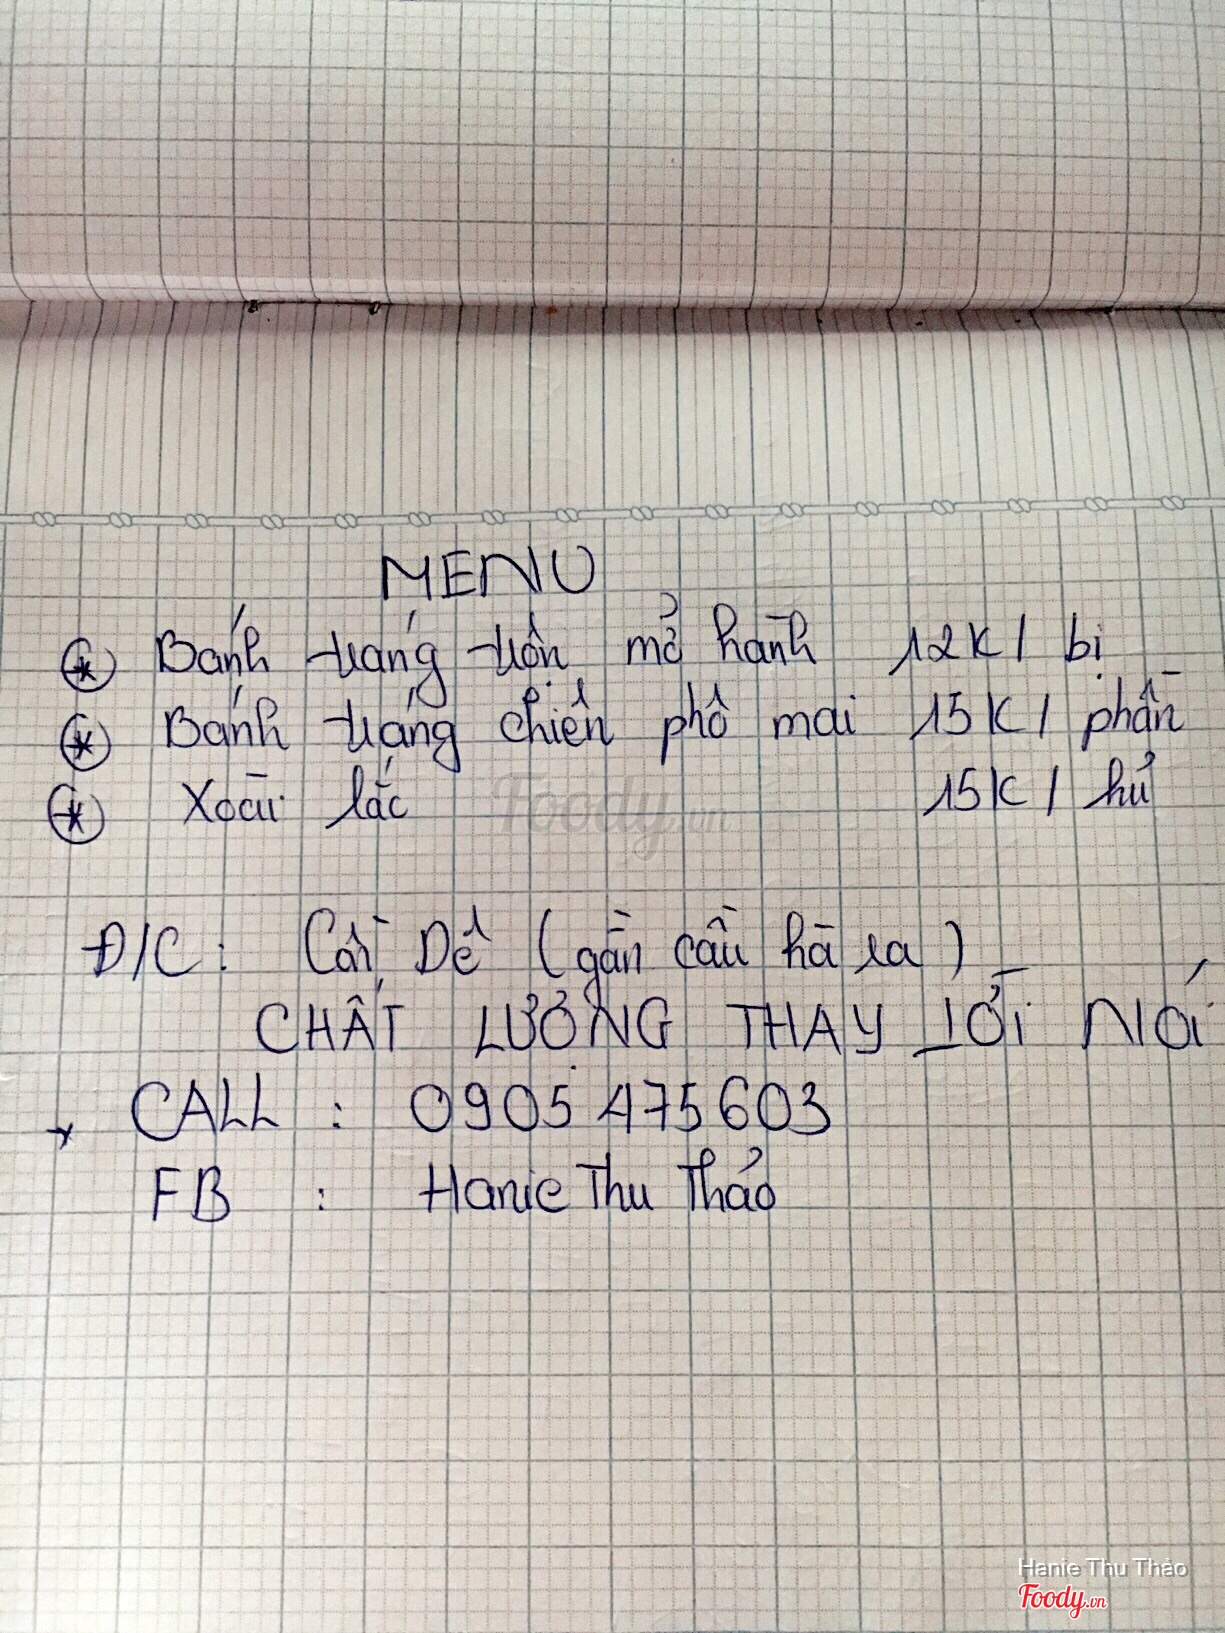 MENU
Bánh tráng trộn mỡ hành 12K / bị
Bánh tráng chiên phô mai 15K / phần
Xoài lắc 15K / hủ
Foody.vn
Đ/C: Cồn Dê (gần cầu hà ra)
CHẤT LƯỢNG THAY LỜI NÓI
CALL : 0905 475 603
FB : Hanie Thu Thảo
Hanie Thu Thảo
Foody.vn